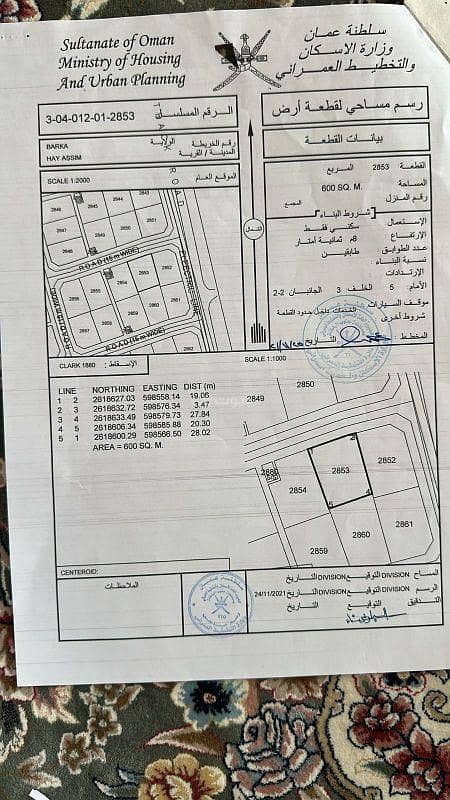 Sultanate of Oman
Ministry of Housing
And Urban Planning
سلطنة عمان
وزارة الاسكان
والتخطيط العمراني
3-04-012-01-2853
الرقم المسلسل
رسم مساحي لقطعة أرض
بيانات القطعة
BARKA
الولاية
HAY ASSIM
رقم الخريطة
المدينة / القرية
SCALE 1:2000
الموقع العام
القطعة 2853 المربع
المساحة 600 SQ. M.
رقم المنزل المجمع
شروط البناء
الإستعمال سكني فقط
الإرتفاع 8م ثمانية أمتار
عدد الطوابق طابقين
نسبة البناء
الإرتدادات
الأمام 5 الخلف 3 الجانبان 2-2
موقف السيارات
الخدمات داخل حدود القطعة
شروط أخرى
المخطط
التاريخ
الشمال
2846
2845
2848
2847
2849
2850
2851
ROAD (15 m WIDE)
2854
2853
2852
2859
2860
2861
ROAD (15 m WIDE)
CLARK 1880
الإسقاط
SCALE 1:1000
LINE NORTHING EASTING DIST (m)
1 2 2618627.03 598558.14 19.06
2 3 2618632.72 598576.34 3.47
3 4 2618633.49 598579.73 27.84
4 5 2618606.34 598585.88 20.30
5 1 2618600.29 598566.50 28.02
AREA = 600 SQ. M.
2850
2849
2853
2852
2854
2880
2861
2860
2859
CENTEROID:
الملاحظات
المساح DIVISION التوقيع DIVISION التاريخ
الرسم DIVISION التوقيع DIVISION التاريخ 24/11/2021
التدقيق التوقيع التاريخ